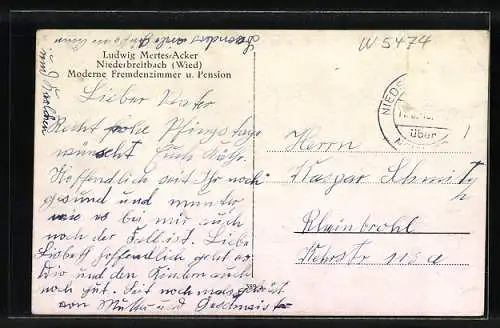 W 5474
Ludwig Mertes-Acker
Niederbreitbach (Wied)
Moderne Fremdenzimmer u. Pension
Lieber Vater
Recht frohe Pfingsttage
wünscht Euch Käthe.
Hoffendlich seit Ihr noch
gesund und munter
wie es bei mir auch
noch der Fall ist. Liebe
Lisbeth hoffendlich geht es
Dir und den Kindern auch
noch gut. Seit noch mals gegrüst
von Mutter und
NIEDE
über
Herrn
Kaspar Schmitz
Rheinbrohl
Kehrstr 113 a